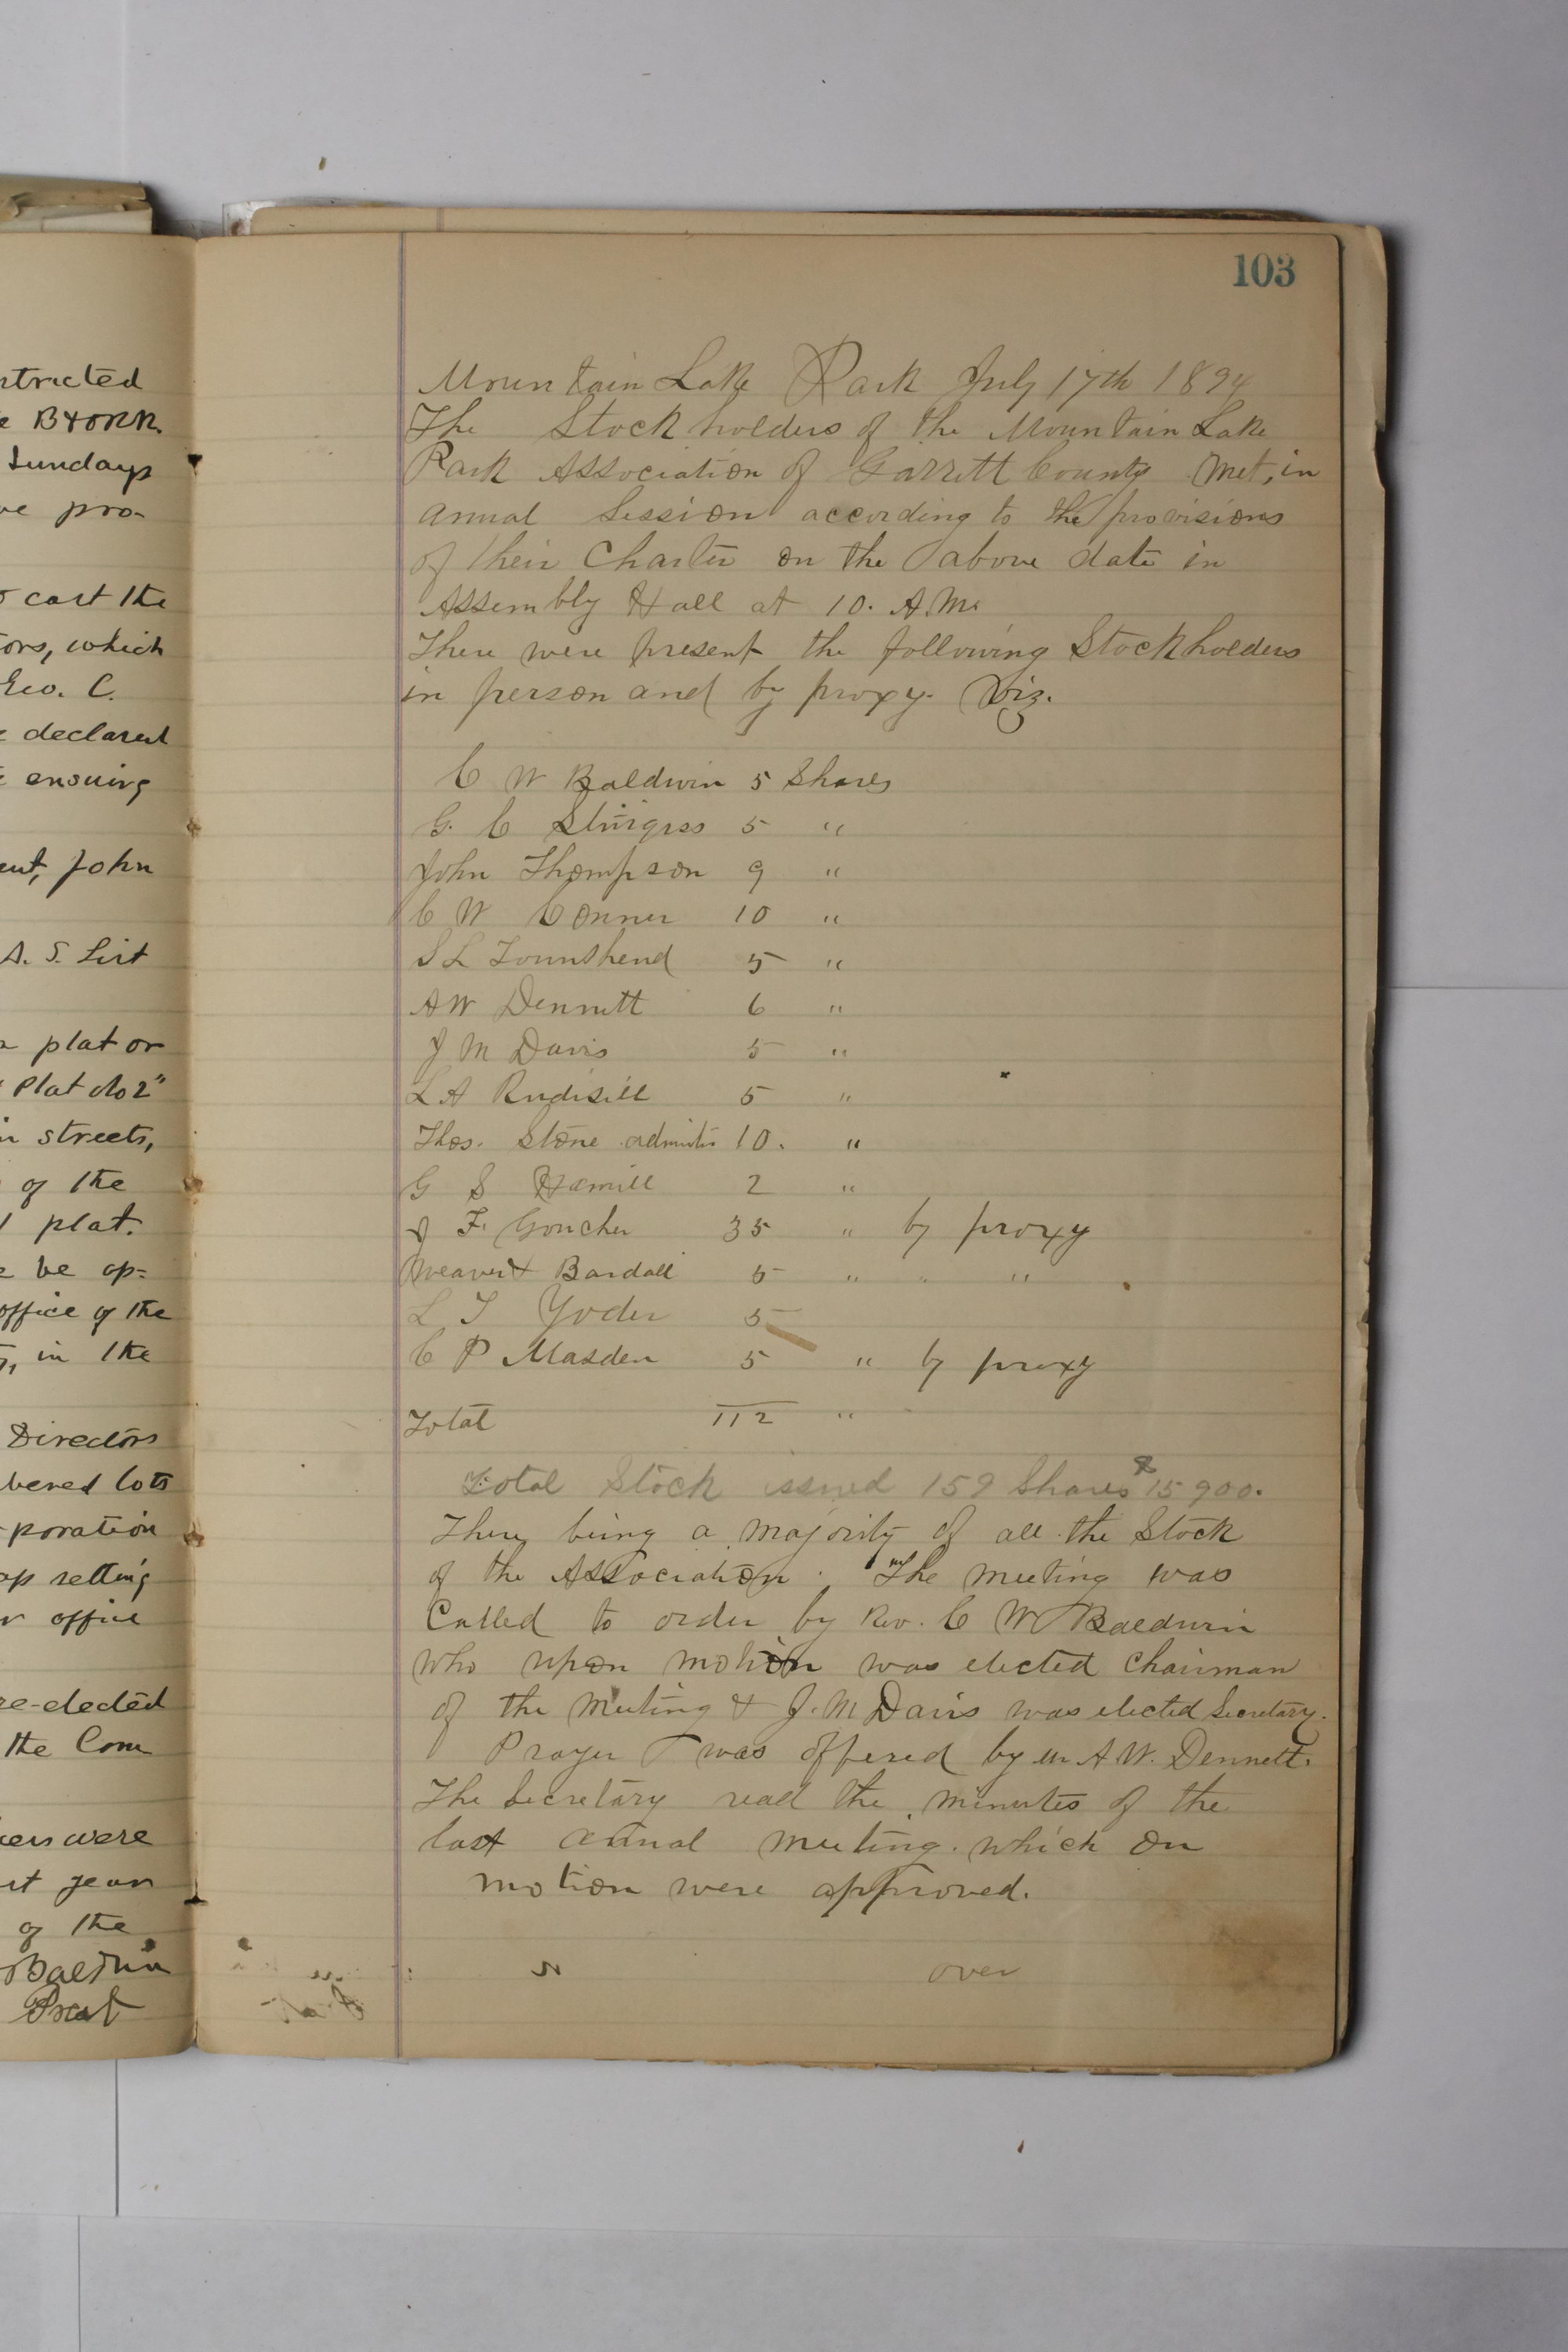 ntracted
e B&ORR.
Sundays
ve pro-
cast the
tors, which
Geo. C.
e declared
ensuing
ent, John
A. S. List
a plat or
"Plat No 2"
in streets,
of the
plat.
be op-
office of the
in the
Directors
bered lots
-poration
ap setting
r office
re-elected
the Com
cers were
st year
of the
Baldwin
Prest
103
Mountain Lake Park July 17th 1894
The Stockholders of the Mountain Lake
Park Association of Garrett County Met, in
annual Session according to the provisions
of their Charter on the above date in
Assembly Hall at 10. A.M.
There were present the following Stockholders
in person and by proxy. Viz.
C W Baldwin 5 Shares
G. C Sturgiss 5 "
John Thompson 9 "
C W Conner 10 "
S L Townshend 5 "
A W Dennett 6 "
J M Davis 5 "
L A Rudisill 5 "
Thos. Stone admistr 10. "
G S Hamill 2 "
J F. Goucher 35 " by proxy
Weaver & Bardall 5 " " "
L T Yoder 5
C P Masden 5 " by proxy
Total 112 "
Total Stock issued 159 Shares $15900.
There being a majority of all the Stock
of the Association. The meeting was
Called to order by Rev. C W Baldwin
who upon motion was elected Chairman
of the Meeting & J. M Davis was elected Secretary.
Prayer was offered by A W. Dennett.
The Secretary read the minutes of the
last annual meeting. which on
motion were approved.
over